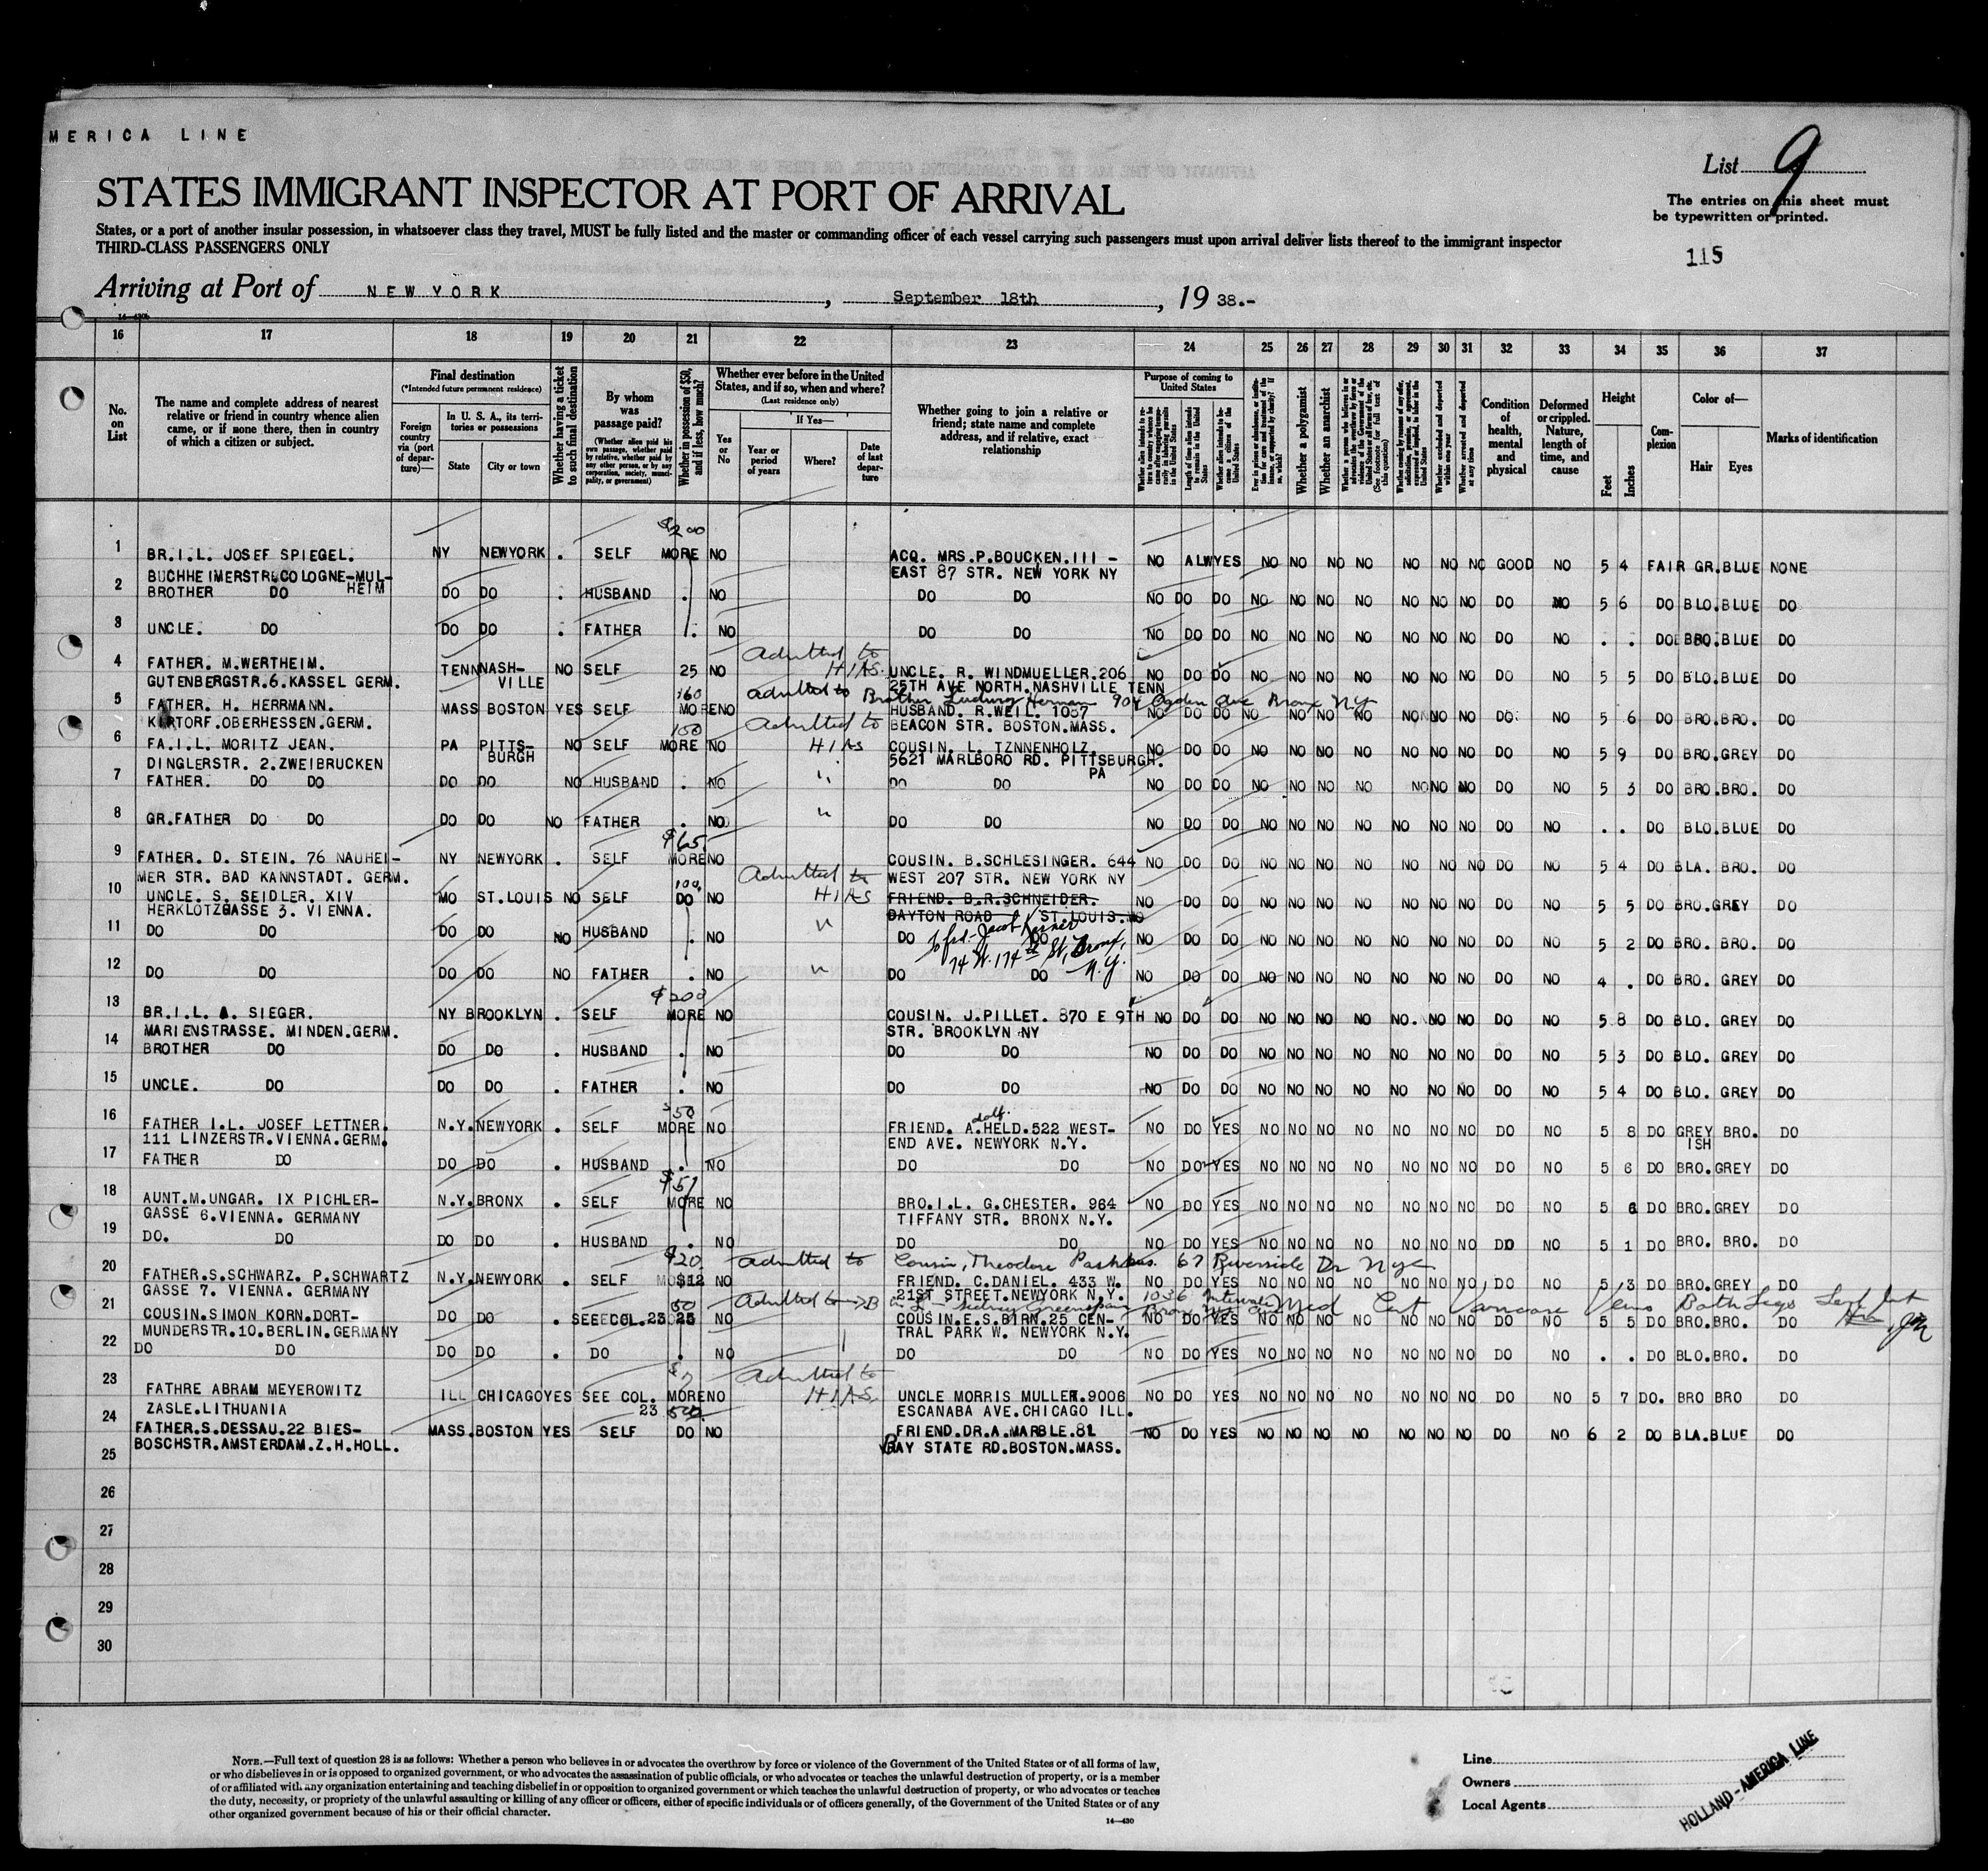 MERICA LINE
List 9
STATES IMMIGRANT INSPECTOR AT PORT OF ARRIVAL
The entries on this sheet must
be typewritten or printed.
States, or a port of another insular possession, in whatsoever class they travel, MUST be fully listed and the master or commanding officer of each vessel carrying such passengers must upon arrival deliver lists thereof to the immigrant inspector
THIRD-CLASS PASSENGERS ONLY
115
Arriving at Port of NEW YORK, September 18th, 19 38.-
16 17 18 19 20 21 22 23 24 25 26 27 28 29 30 31 32 33 34 35 36 37
No. on List
The name and complete address of nearest
relative or friend in country whence alien
came, or if none there, then in country
of which a citizen or subject.
Final destination
(*Intended future permanent residence)
Foreign country via (port of departure)—
In U. S. A., its territories or possessions
State City or town
Whether having a ticket to such final destination
By whom was passage paid?
(Whether alien paid his own passage, whether paid by relative, whether paid by any other person, or by any corporation, society, municipality, or government)
Whether in possession of $50, and if less, how much?
Whether ever before in the United
States, and if so, when and where?
(Last residence only)
Yes or No
If Yes—
Year or period of years
Where?
Date of last departure
Whether going to join a relative or
friend; state name and complete
address, and if relative, exact
relationship
Purpose of coming to United States
Length of time alien intends to remain in the United States
Whether alien intends to become a citizen of the United States
Whether a polygamist
Whether an anarchist
(See footnote for full text of this question)
Whether excluded and deported within one year
Whether arrested and deported at any time
Condition of health, mental and physical
Deformed or crippled. Nature, length of time, and cause
Height
Feet Inches
Complexion
Color of—
Hair Eyes
Marks of identification
$200
1 BR.I.L. JOSEF SPIEGEL. NY NEWYORK . SELF MORE NO ACQ. MRS.P.BOUCKEN.111 - NO ALWYES NO NO NO NO NO NO NO GOOD NO 5 4 FAIR GR.BLUE NONE
BUCHHEIMERSTR.COLOGNE-MUL- EAST 87 STR. NEW YORK NY
HEIM
2 BROTHER DO DO DO . HUSBAND . NO DO DO NO DO DO NO NO NO NO NO NO NO DO NO 5 6 DO BLO.BLUE DO
3 UNCLE. DO DO DO . FATHER . NO DO DO NO DO DO NO NO NO NO NO NO NO DO NO . . DO BRO.BLUE DO
Admitted to
HIAS
4 FATHER. M.WERTHEIM. TENN NASH- NO SELF 25 NO UNCLE. R. WINDMUELLER.206 NO DO DO NO NO NO NO NO NO NO DO NO 5 5 DO BLO.BLUE DO
GUTENBERGSTR.6.KASSEL GERM. VILLE 25TH AVE NORTH.NASHVILLE TENN
160 admitted to Brother Ludwig Herman 904 Ogden Ave Bronx NY
5 FATHER. H. HERRMANN. MASS BOSTON YES SELF MORE NO HUSBAND. R.WEIL. 1087 NO DO DO NO NO NO NO NO NO NO DO NO 5 6 DO BRO.BRO. DO
KIRTORF.OBERHESSEN.GERM. BEACON STR. BOSTON.MASS.
Admitted to
HIAS
6 FA.I.L. MORITZ JEAN. PA PITTS- NO SELF MORE NO COUSIN. L. TZNNENHOLZ. NO DO DO NO NO NO NO NO NO NO DO NO 5 9 DO BRO.GREY DO
DINGLERSTR. 2.ZWEIBRUCKEN BURGH 5621 MARLBORO RD. PITTSBURGH.
PA
7 FATHER. DO DO DO DO NO HUSBAND . NO " DO DO NO DO DO NO NO NO NO NO NO NO DO NO 5 3 DO BRO.BRO. DO
8 GR.FATHER DO DO DO DO NO FATHER . NO " DO DO NO DO DO NO NO NO NO NO NO NO DO NO . . DO BLO.BLUE DO
$65.
9 FATHER. D. STEIN. 76 NAUHEI- NY NEWYORK . SELF MORE NO COUSIN. B.SCHLESINGER. 644 NO DO DO NO NO NO NO NO NO NO DO NO 5 4 DO BLA. BRO. DO
MER STR. BAD KANNSTADT. GERM. WEST 207 STR. NEW YORK NY
100. Admitted to
HIAS
10 UNCLE. S. SEIDLER. XIV MO ST.LOUIS NO SELF DO NO FRIEND. B.R.SCHNEIDER. NO DO DO NO NO NO NO NO NO NO DO NO 5 5 DO BRO.GREY DO
HERKLOTZGASSE 3. VIENNA. DAYTON ROAD ST.LOUIS.MO
11 DO DO DO DO NO HUSBAND . NO " DO DO NO DO DO NO NO NO NO NO NO NO DO NO 5 2 DO BRO. BRO. DO
to frd- Jacob Kerner
74 W. 174th St, Bronx,
N.Y.
12 DO DO DO DO NO FATHER . NO " DO DO NO DO DO NO NO NO NO NO NO NO DO NO 4 . DO BRO. GREY DO
$200
13 BR.I.L. A. SIEGER. NY BROOKLYN . SELF MORE NO COUSIN. J.PILLET. 870 E 9TH NO DO DO NO NO NO NO NO. NO NO DO NO 5 8 DO BLO. GREY DO
MARIENSTRASSE. MINDEN.GERM. STR. BROOKLYN NY
14 BROTHER DO DO DO . HUSBAND . NO DO DO NO DO DO NO NO NO NO NO NO NO DO NO 5 3 DO BLO. GREY DO
15 UNCLE. DO DO DO . FATHER . NO DO DO NO DO DO NO NO NO NO NO NO NO DO NO 5 4 DO BLO. GREY DO
$50 dolf.
16 FATHER I.L. JOSEF LETTNER. N.Y. NEWYORK . SELF MORE NO FRIEND. A.HELD.522 WEST- NO DO YES NO NO NO NO NO NO NO DO NO 5 8 DO GREY BRO. DO
111 LINZERSTR.VIENNA.GERM. END AVE. NEWYORK N.Y. ISH
17 FATHER DO DO DO . HUSBAND . NO DO DO NO DO YES NO NO NO NO NO NO NO DO NO 5 6 DO BRO.GREY DO
$51
18 AUNT.M.UNGAR. IX PICHLER- N.Y. BRONX . SELF MORE NO BRO.I.L. G.CHESTER. 964 NO DO YES NO NO NO NO NO NO NO DO NO 5 6 DO BRO.GREY DO
GASSE 6.VIENNA. GERMANY TIFFANY STR. BRONX N.Y.
19 DO. DO DO DO . HUSBAND . NO DO DO NO DO YES NO NO NO NO NO NO NO DO NO 5 1 DO BRO. BRO. DO
$20. Admitted to Cousin, Theodore 67 Riverside Dr Nyc
20 FATHER.S.SCHWARZ. P.SCHWARTZ N.Y. NEWYORK . SELF $12 NO FRIEND. C.DANIEL. 433 W. NO DO YES NO NO NO NO NO NO NO DO NO 5 3 DO BRO.GREY DO
GASSE 7. VIENNA. GERMANY 21ST STREET.NEWYORK N.Y.
50 Admitted to B in L - Sidney Greenspan 1036 Bronx Med Cert Varicose Veins Both Legs
21 COUSIN.SIMON KORN.DORT- DO DO . SEE COL.23 25 NO COUSIN.E.S.BIRN.25 CEN- NO DO YES NO NO NO NO NO NO NO DO NO 5 5 DO BRO.BRO. DO
MUNDERSTR.10.BERLIN.GERMANY TRAL PARK W. NEWYORK N.Y.
22 DO DO DO DO . DO . NO DO DO NO DO YES NO NO NO NO NO NO NO DO NO . . DO BLO.BRO. DO
Admitted to
HIAS
23 FATHRE ABRAM MEYEROWITZ ILL CHICAGO YES SEE COL. MORE NO UNCLE MORRIS MULLER.9006 NO DO YES NO NO NO NO NO NO NO DO NO 5 7 DO. BRO BRO DO
ZASLE.LITHUANIA 23 ESCANABA AVE.CHICAGO ILL.
500.
24 FATHER.S.DESSAU.22 BIES- MASS. BOSTON YES SELF DO NO FRIEND.DR.A.MARBLE.81 NO DO YES NO NO NO NO NO NO NO DO NO 6 2 DO BLA.BLUE DO
BOSCHSTR.AMSTERDAM.Z.H.HOLL. BAY STATE RD.BOSTON.MASS.
25
26
27
28
29
30
NOTE.—Full text of question 28 is as follows: Whether a person who believes in or advocates the overthrow by force or violence of the Government of the United States or of all forms of law,
or who disbelieves in or is opposed to organized government, or who advocates the assassination of public officials, or who advocates or teaches the unlawful destruction of property, or is a member
of or affiliated with any organization entertaining and teaching disbelief in or opposition to organized government or which teaches the unlawful destruction of property, or who advocates or teaches
the duty, necessity, or propriety of the unlawful assaulting or killing of any officer or officers, either of specific individuals or of officers generally, of the Government of the United States or of any
other organized government because of his or their official character.
14—430
Line
Owners
Local Agents
HOLLAND-AMERICA LINE